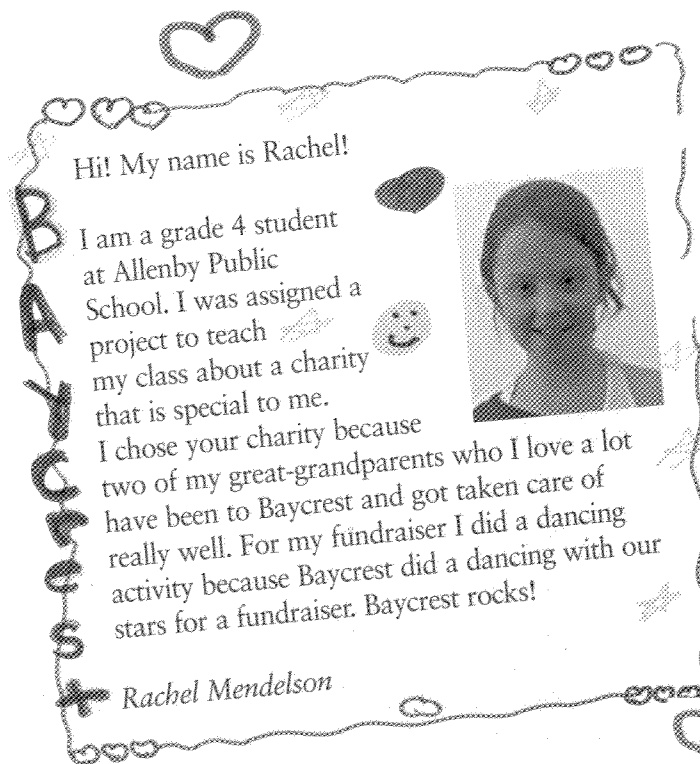 Baycrest
Hi! My name is Rachel!
I am a grade 4 student
at Allenby Public
School. I was assigned a
project to teach
my class about a charity
that is special to me.
I chose your charity because
two of my great-grandparents who I love a lot
have been to Baycrest and got taken care of
really well. For my fundraiser I did a dancing
activity because Baycrest did a dancing with our
stars for a fundraiser. Baycrest rocks!
Rachel Mendelson